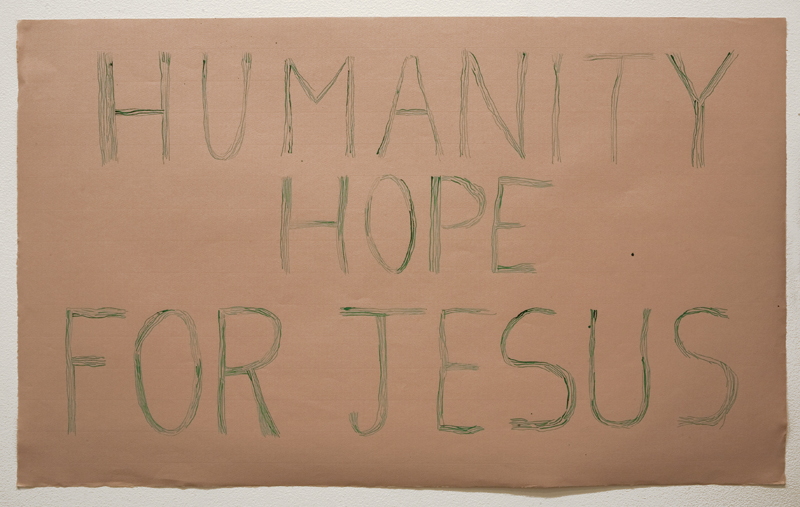 HUMANITY
HOPE
FOR JESUS